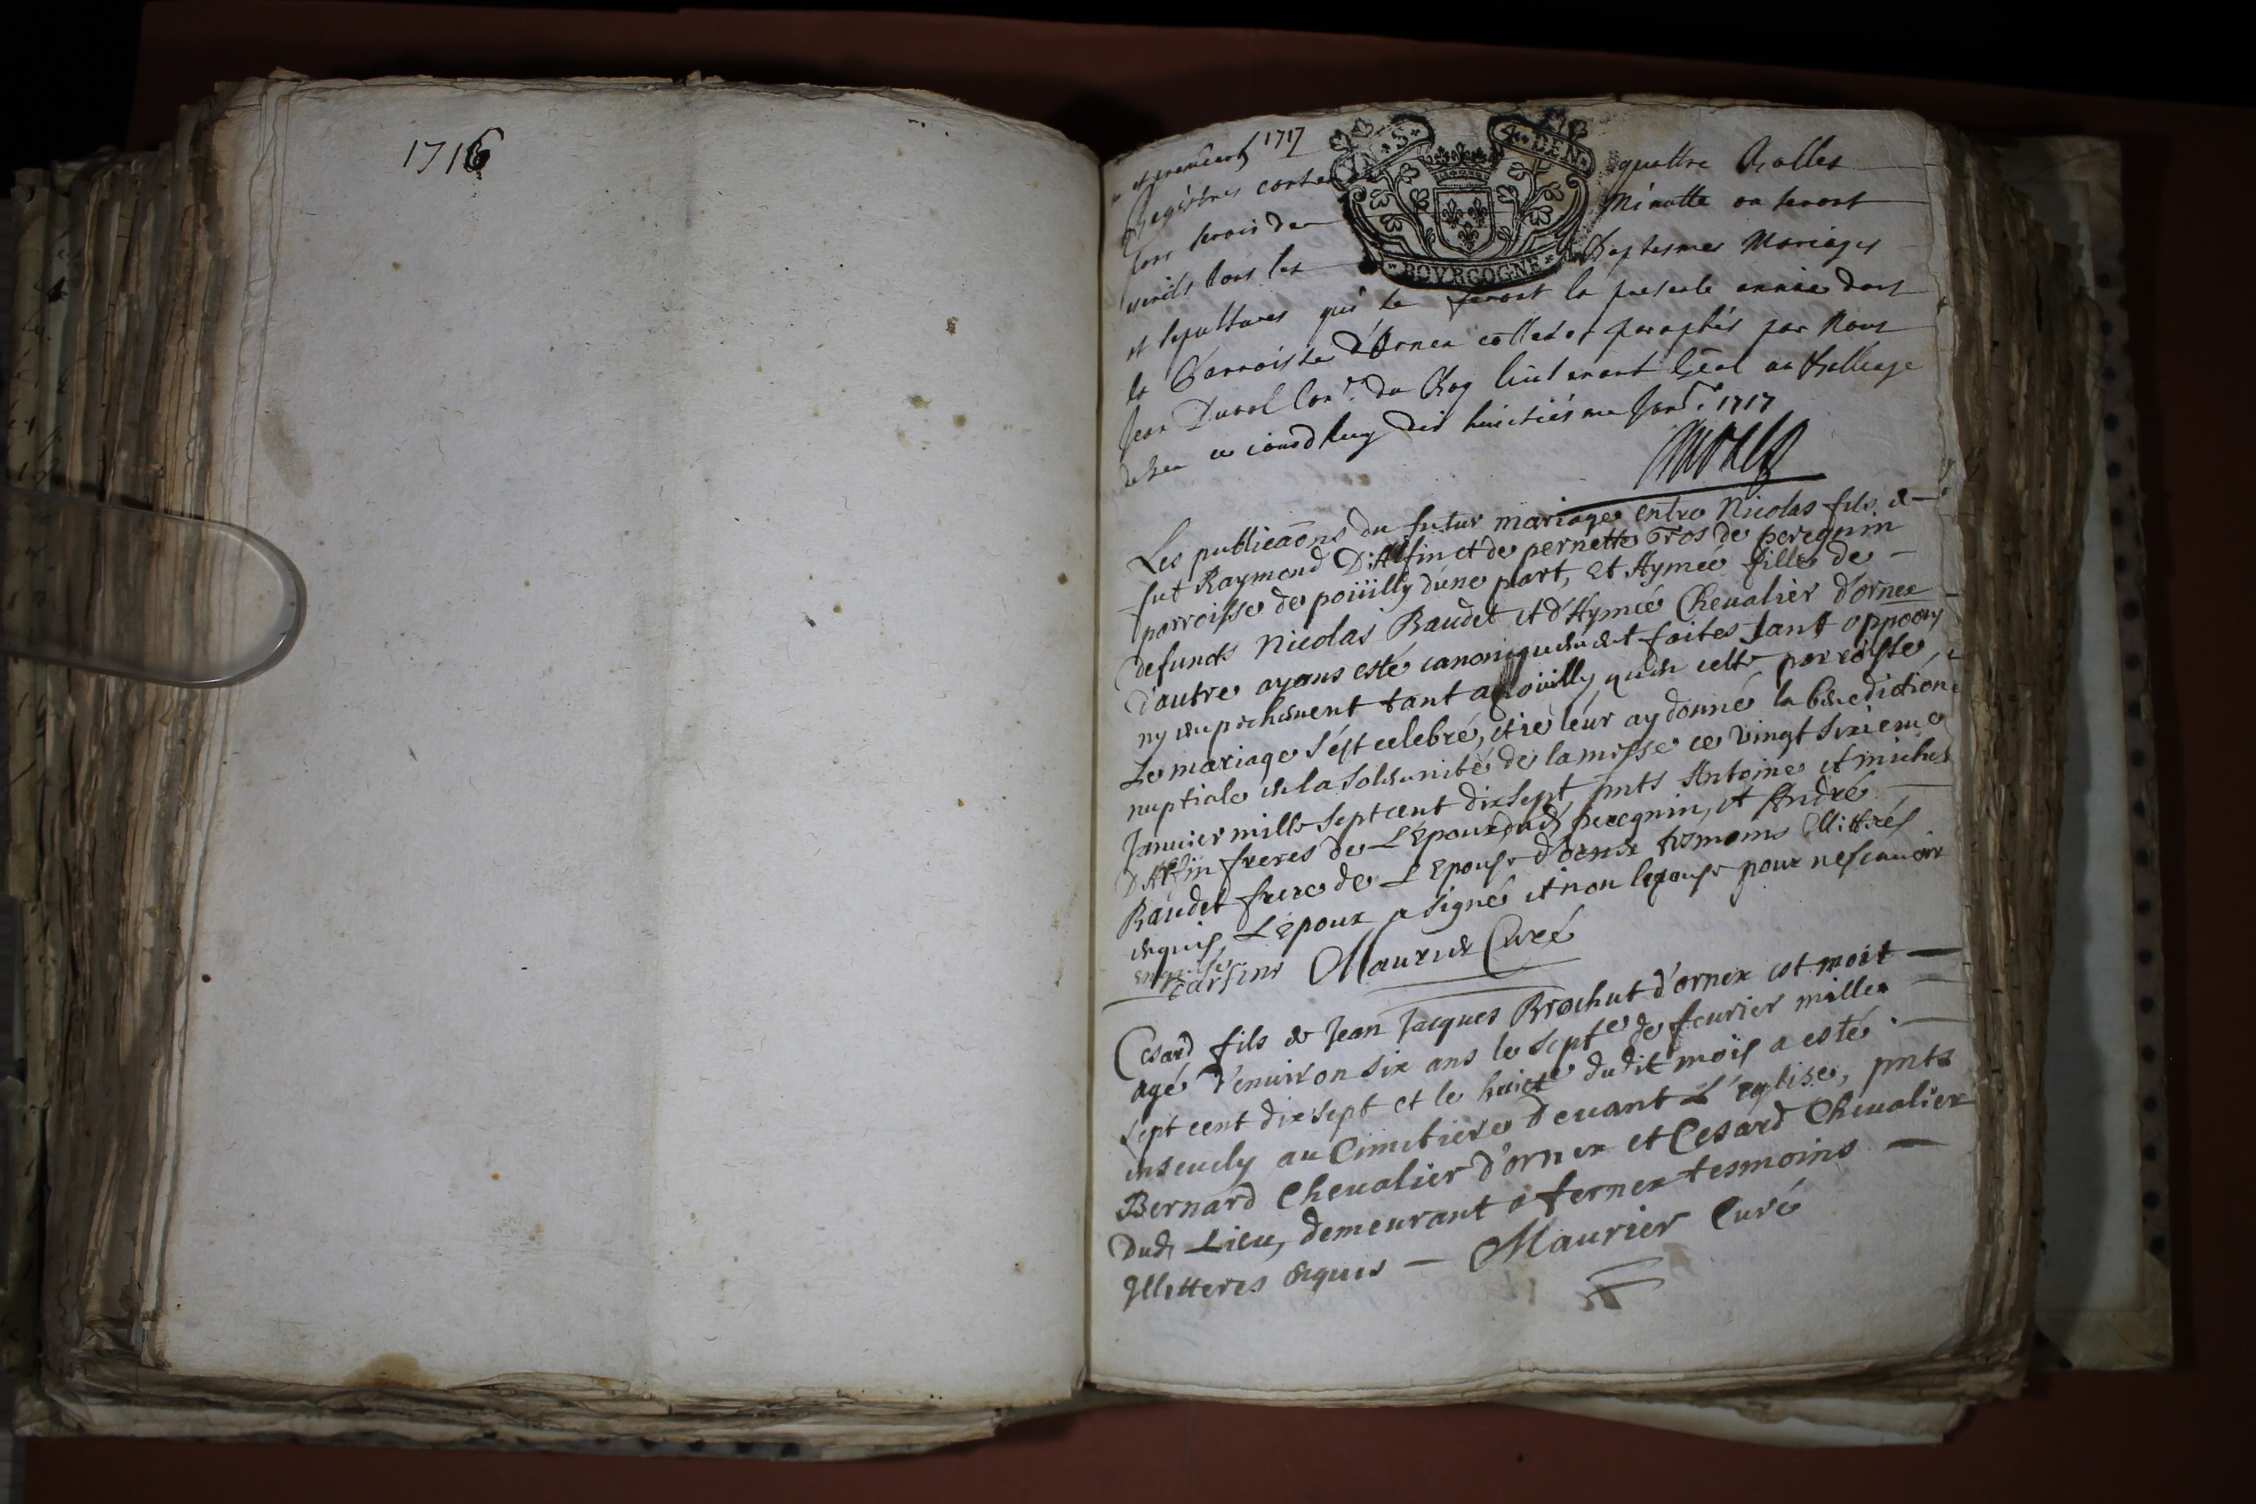 1716
1717
Registres quattre Rolles
pour servir de Minutte ou seront
tous les Baptesmes Mariages
et sepultures qui se feront la presente année dans
la Parroisse d'Ornex cottes et paraphés par Nous
Jean Duval Con.r du Roy lieutenant Gēāl au Balliage
de Gex ce iourdhuy dix huictiesme Janv.r 1717
S. DEN.
BOVRGOGNE
Les publicaōns du futur mariage entre Nicolas fils de
fut Raymond D'Alfin et de pernette Gros de peregnin
parroisse de poüilly d'une part, Et Aymée fille de
defuncts Nicolas Baudet et d'Aymée Chevalier d'ornex
d'autre ayans esté canoniquement faites sant oppoōn
ny empeschement tant a poüilly qu'en cette parroisse,
Le mariage s'est celebré, et ie leur ay donné la benediction
nuptiale en la solemnité de la messe ce vingt sixieme
Janvier mille sept cent dix sept pnts Antoine et michel
D'Alfin freres de L'Epoux dud peregnin, et André
Baudet frere de L'Epouse d'ornex tesmoins Illitrés
enquis, L'Epoux a signé et non lepouse pour ne scauoir
enquise Maurier Curé
Cesard fils de Jean Jacques Brochut d'ornex est mort
agé d'enuiron six ans le sept.e de feurier mille
sept cent dix sept et le huict.e dudit mois a esté
enseuely au Cimitiere deuant L'eglise, pnts
Bernard Cheualier d'ornex et Cesard Cheualier
Dud Lieu, demeurant a fernex tesmoins
Illitteres enquis Maurier Curé